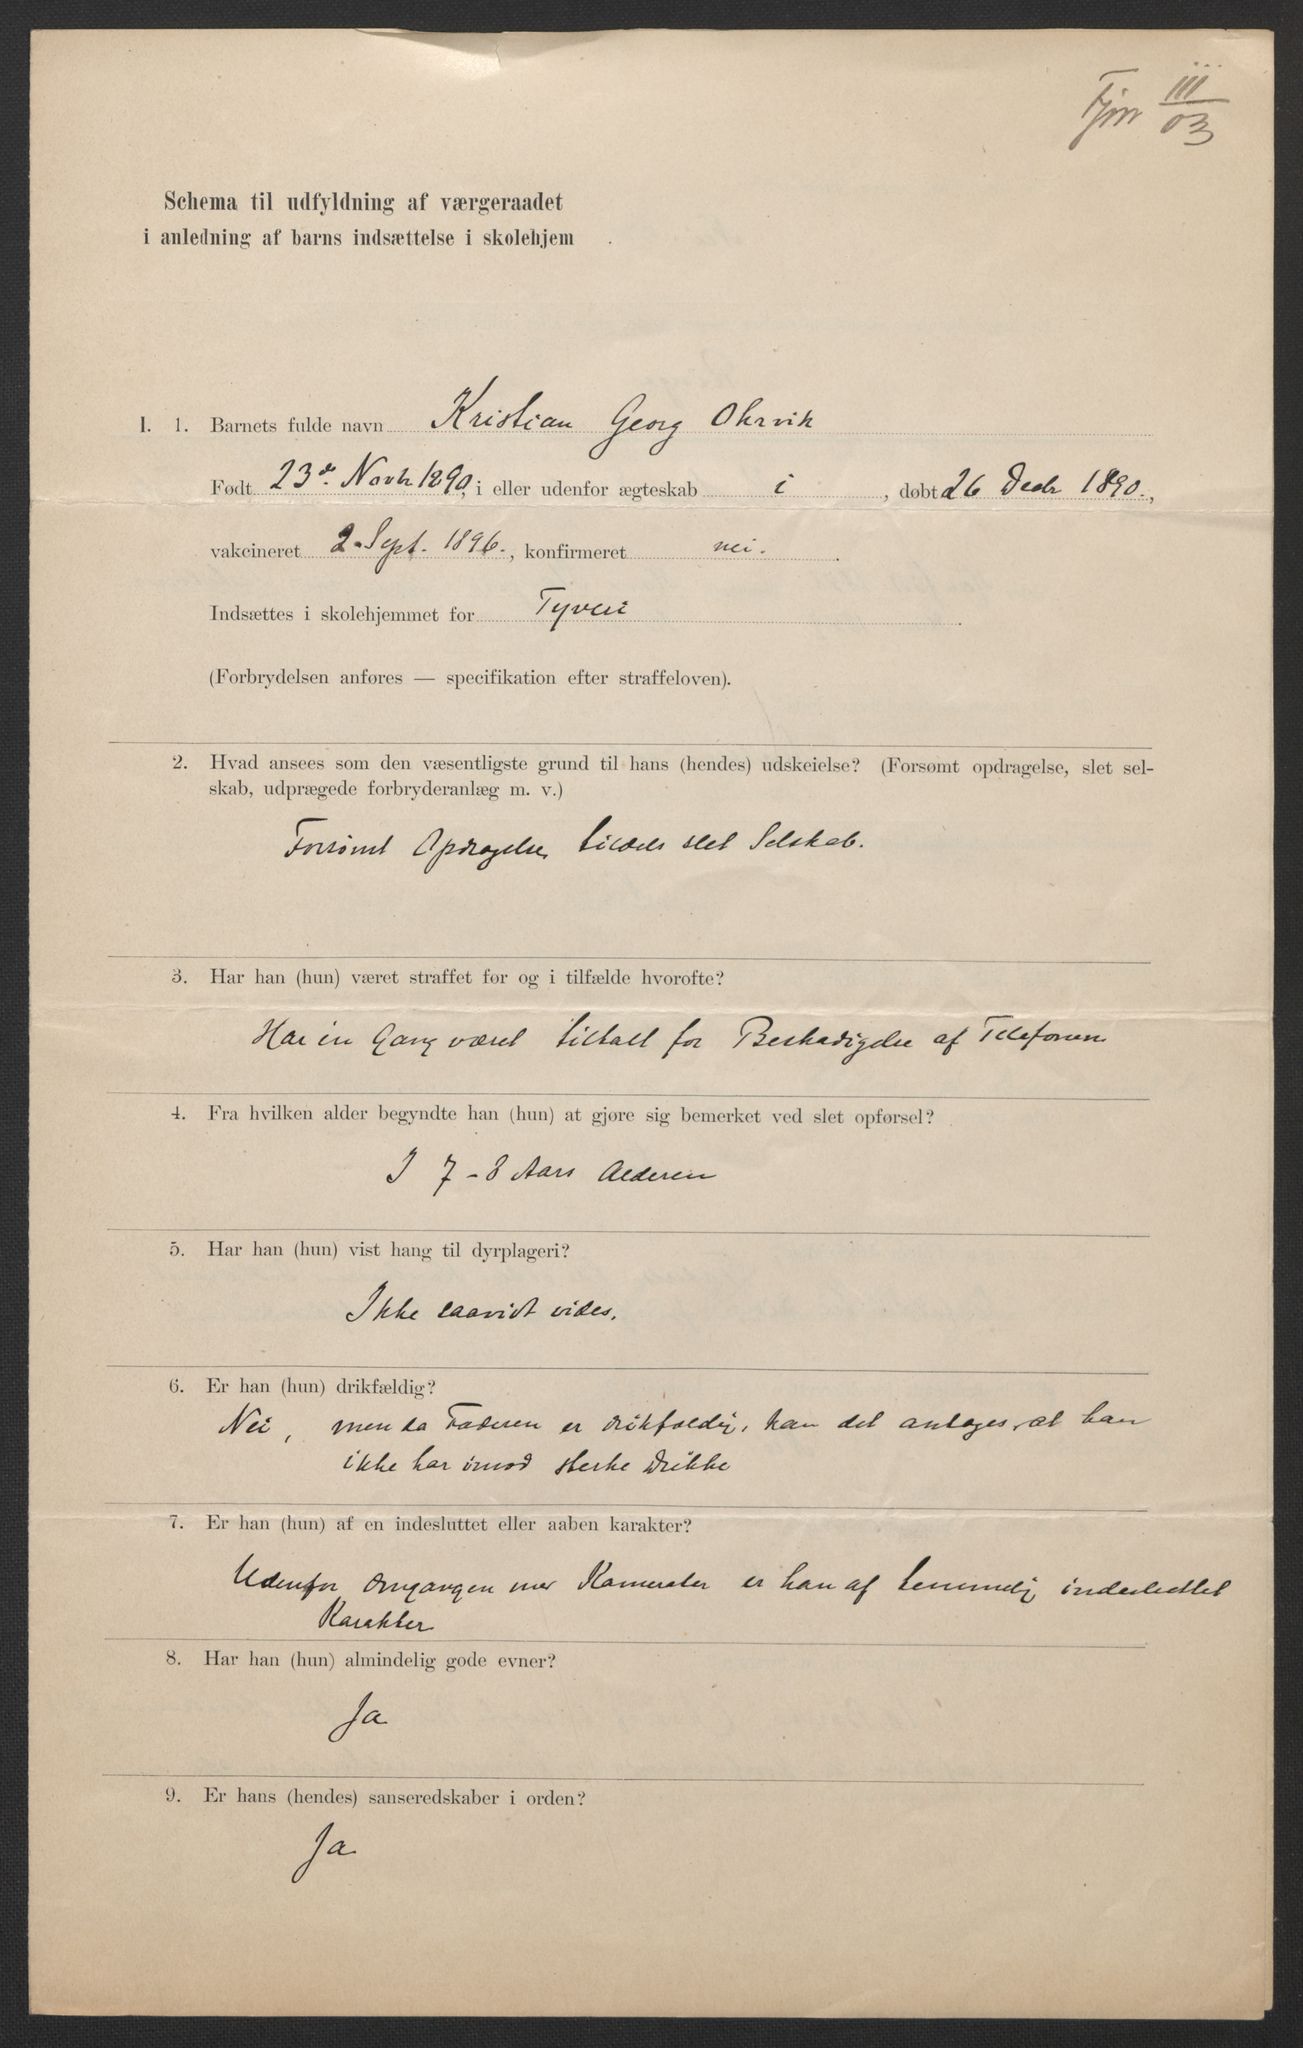 Fjrn III/03
Schema til udfyldning af værgeraadet
i anledning af barns indsættelse i skolehjem
I. 1. Barnets fulde navn Kristian Georg Ohrvik
Født 23de Novbr 1890, i eller udenfor ægteskab i, døbt 26 Decbr 1890.,
vakcineret 2. Sept. 1896., konfirmeret nei.
Indsættes i skolehjemmet for Tyveri.
(Forbrydelsen anføres — specifikation efter straffeloven).
2. Hvad ansees som den væsentligste grund til hans (hendes) udskeielse? (Forsømt opdragelse, slet sel-
skab, udprægede forbryderanlæg m. v.)
Forsømt Opdragelse, tildels slet Selskab.
3. Har han (hun) været straffet før og i tilfælde hvorofte?
Har en Gang været tiltalt for Beskadigelse af Telefonen
4. Fra hvilken alder begyndte han (hun) at gjøre sig bemerket ved slet opførsel?
I 7-8 Aars Alderen
5. Har han (hun) vist hang til dyrplageri?
Ikke saavidt vides.
6. Er han (hun) drikfældig?
Nei, men da Faderen er drikfældig, kan det antages, at han
ikke har imod sterke Drikke
7. Er han (hun) af en indesluttet eller aaben karakter?
Udenfor Omgangen med Kamerater er han af temmelig indesluttet
Karakter
8. Har han (hun) almindelig gode evner?
Ja
9. Er hans (hendes) sanseredskaber i orden?
Ja